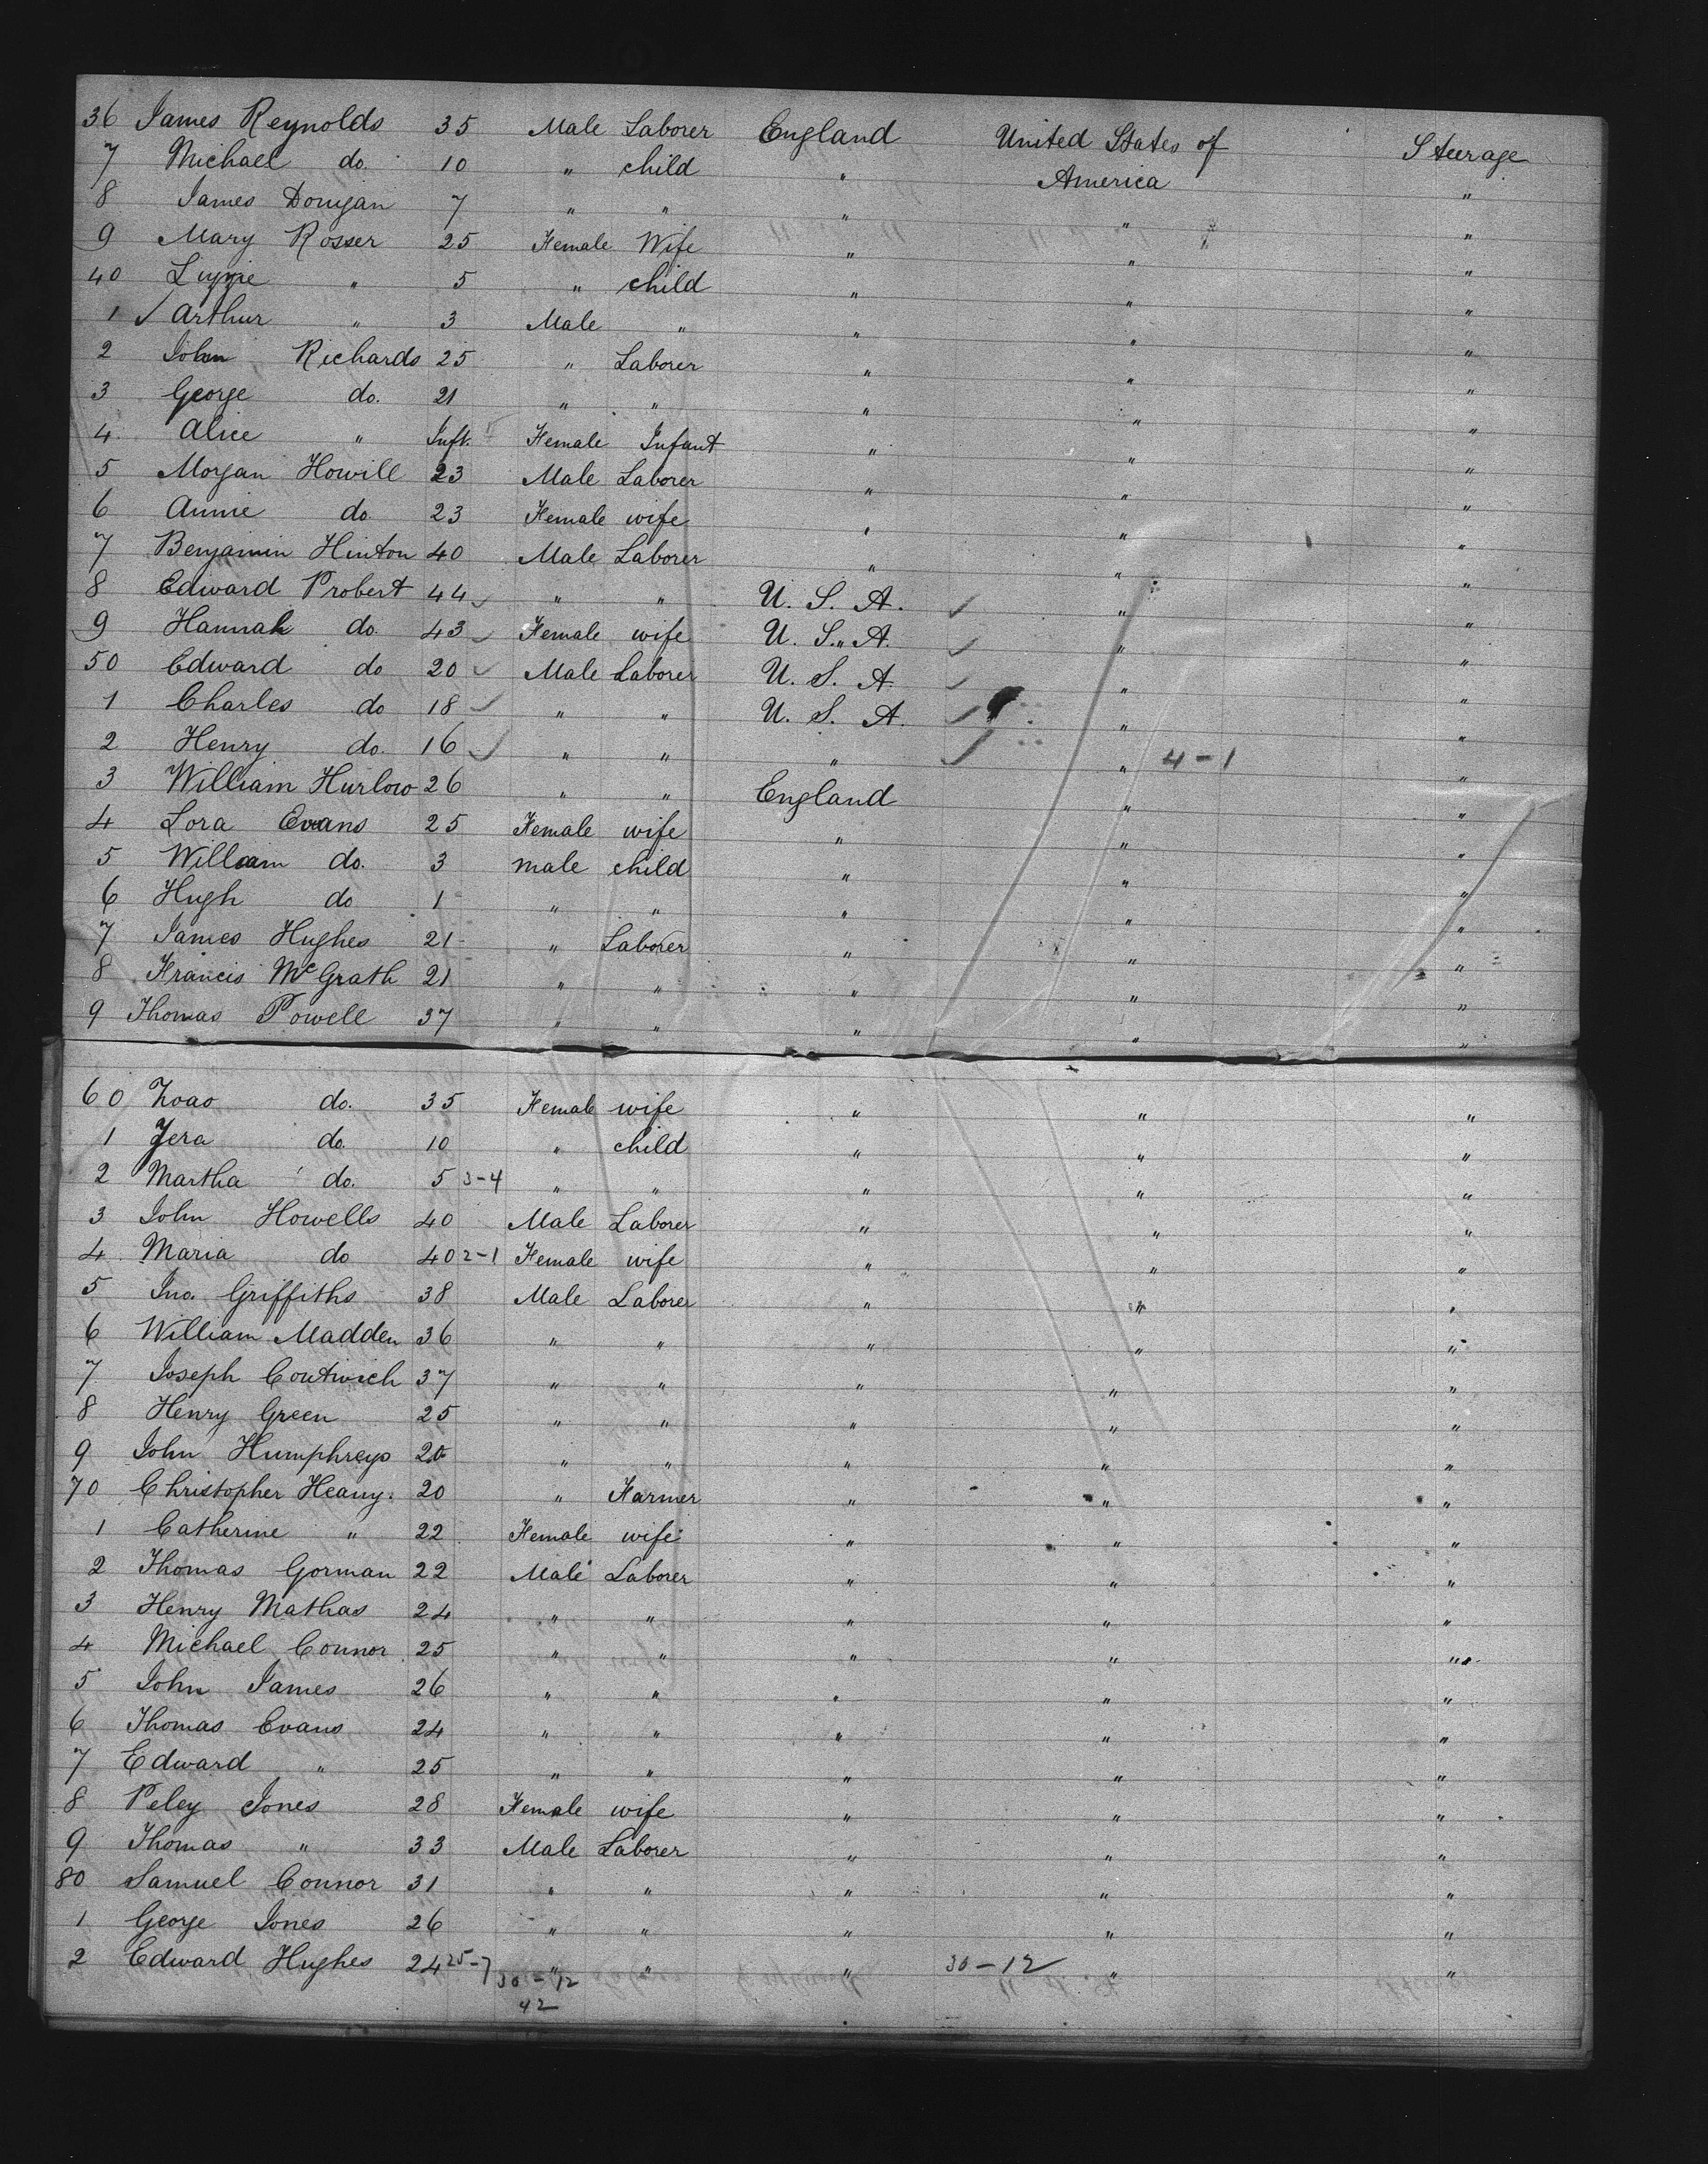 36 James Reynolds 35 Male Laborer England United States of Steerage
7 Michael do. 10 " child " America "
8 James Donygan 7 " " " " "
9 Mary Rosser 25 Female Wife " " "
40 Lizzie " 5 " child " " "
1 ✓ Arthur " 3 Male " " " "
2 John Richards 25 " Laborer " " "
3 George do. 21 " " " " "
4 Alice " Inft. Female Infant " " "
5 Morgan Howill 23 Male Laborer " " "
6 Annie do. 23 Female wife " " "
7 Benjamin Hinton 40 Male Laborer " " "
8 Edward Probert 44 ✓ " " U. S. A. ✓ " "
9 Hannah do. 43 ✓ Female wife U. S. A. ✓ " "
50 Edward do 20 ✓ Male Laborer U. S. A. ✓ " "
1 Charles do 18 ✓ " " U. S. A. ✓ " "
2 Henry do. 16 ✓ " " " ✓ " 4-1 "
3 William Hurlow 26 " " England " "
4 Lora Evans 25 Female wife " " "
5 William do. 3 male child " " "
6 Hugh do 1 " " " " "
7 James Hughes 21 " Laborer " " "
8 Francis McGrath 21 " " " " "
9 Thomas Powell 37 " " " " "
60 Zoao do. 35 Female wife " " "
1 Zera do. 10 " child " " "
2 Martha do. 5 3-4 " " " " "
3 John Howells 40 Male Laborer " " "
4 Maria do 40 2-1 Female wife " " "
5 Jno. Griffiths 38 Male Laborer " " "
6 William Madden 36 " " " " "
7 Joseph 37 " " " " "
8 Henry Green 25 " " " " "
9 John Humphreys 20 " " " " "
70 Christopher Heany. 20 " Farmer " " "
1 Catherine " 22 Female wife " " "
2 Thomas Gorman 22 Male Laborer " " "
3 Henry Mathas 24 " " " " "
4 Michael Connor 25 " " " " "
5 John James 26 " " " " "
6 Thomas Evans 24 " " " " "
7 Edward " 25 " " " " "
8 Peley Jones 28 Female wife " " "
9 Thomas " 33 Male Laborer " " "
80 Samuel Connor 31 " " " " "
1 George Jones 26 " " " " "
2 Edward Hughes 24 25-7 " " " 30-12 " "
30-12
42